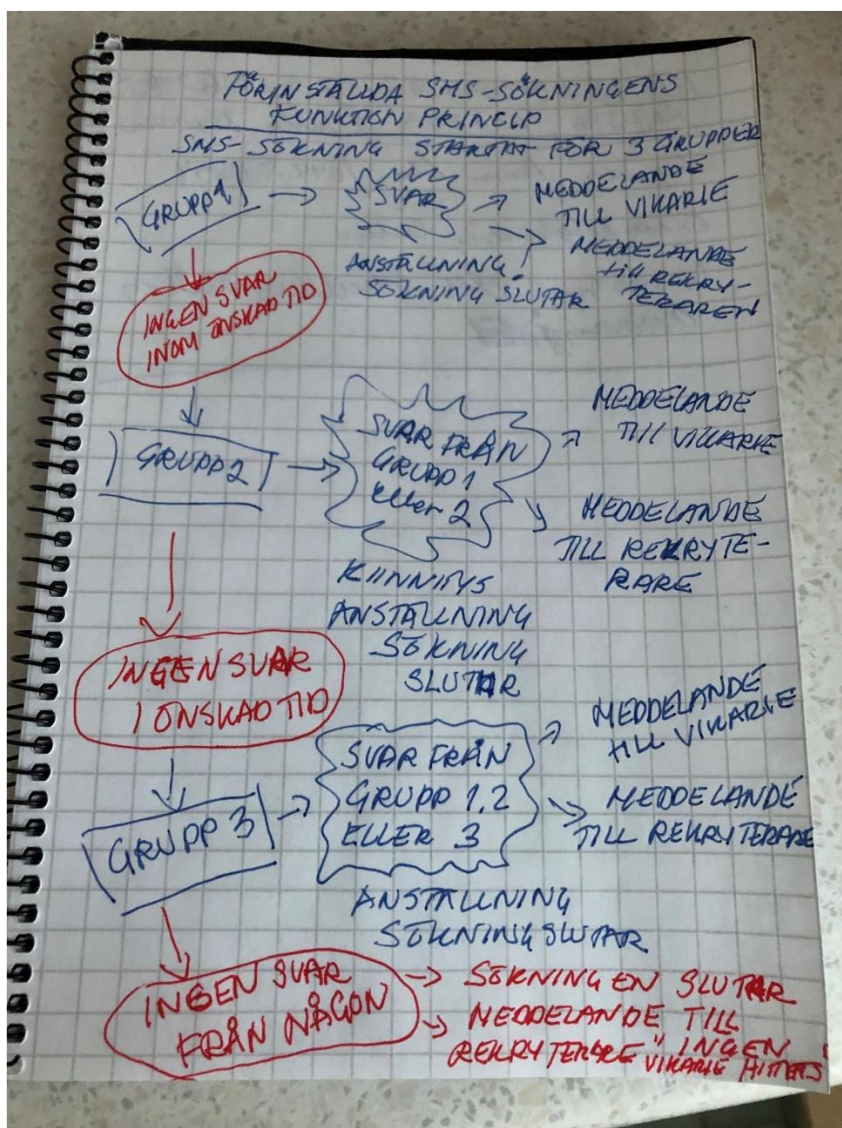 FÖRINSTÄLLDA SMS-SÖKNINGENS
FUNKTION PRINCIP
SMS-SÖKNING STARTAT FÖR 3 GRUPPER
GRUPP 1
SVAR
MEDDELANDE
TILL VIKARIE
MEDDELANDE
till REKRY-
TERAREN
ANSTÄLLNING
SÖKNING SLUTAR
INGEN SVAR
INOM ÖNSKAD TID
GRUPP 2
SVAR FRÅN
GRUPP 1
Eller 2
MEDDELANDE
TILL VIKARIE
MEDDELANDE
TILL REKRYTE-
RARE
KIINNITYS
ANSTÄLLNING
SÖKNING
SLUTAR
INGEN SVAR
I ÖNSKAD TID
GRUPP 3
SVAR FRÅN
GRUPP 1,2
ELLER 3
MEDDELANDE
TILL VIKARIE
MEDDELANDE
TILL REKRYTERARE
ANSTÄLLNING
SÖKNING SLUTAR
INGEN SVAR
FRÅN NÅGON
SÖKNINGEN SLUTAR
MEDDELANDE TILL
REKRYTERARE "INGEN
VIKARIE HITTATS"